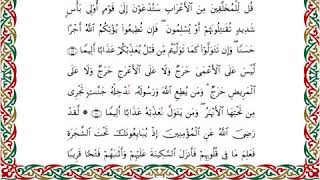 قُل لِّلْمُخَلَّفِينَ مِنَ الْأَعْرَابِ سَتُدْعَوْنَ إِلَىٰ قَوْمٍ أُولِي بَأْسٍ
شَدِيدٍ تُقَاتِلُونَهُمْ أَوْ يُسْلِمُونَ ۖ فَإِن تُطِيعُوا يُؤْتِكُمُ اللَّهُ أَجْرًا
حَسَنًا ۖ وَإِن تَتَوَلَّوْا كَمَا تَوَلَّيْتُم مِّن قَبْلُ يُعَذِّبْكُمْ عَذَابًا أَلِيمًا ۝١٦
لَّيْسَ عَلَى الْأَعْمَىٰ حَرَجٌ وَلَا عَلَى الْأَعْرَجِ حَرَجٌ وَلَا عَلَى
الْمَرِيضِ حَرَجٌ ۗ وَمَن يُطِعِ اللَّهَ وَرَسُولَهُ نُدْخِلْهُ جَنَّاتٍ تَجْرِي
مِن تَحْتِهَا الْأَنْهَارُ ۖ وَمَن يَتَوَلَّ نُعَذِّبْهُ عَذَابًا أَلِيمًا ۝١٧ ۞ لَّقَدْ
رَضِيَ اللَّهُ عَنِ الْمُؤْمِنِينَ إِذْ يُبَايِعُونَكَ تَحْتَ الشَّجَرَةِ
فَعَلِمَ مَا فِي قُلُوبِهِمْ فَأَنزَلَ السَّكِينَةَ عَلَيْهِمْ وَأَثَابَهُمْ فَتْحًا قَرِيبًا